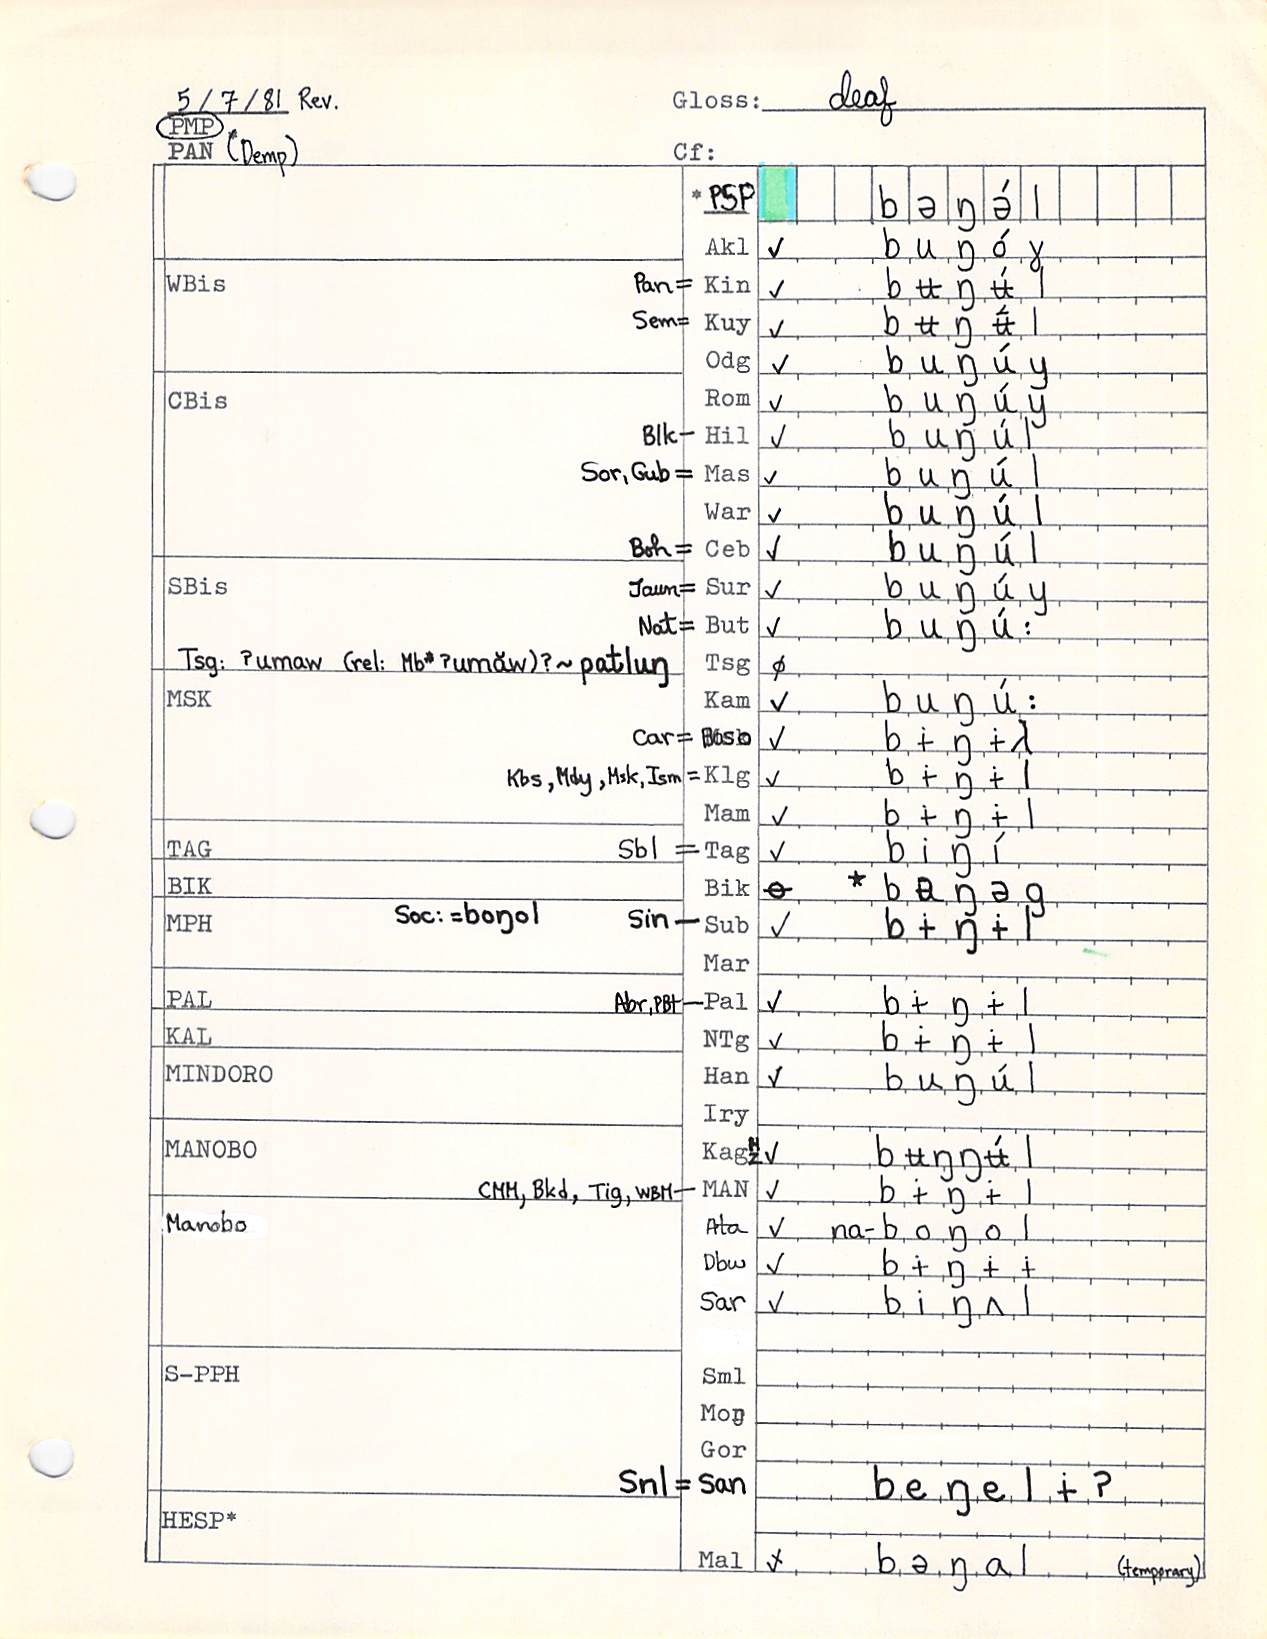 5/7/81 Rev. Gloss: deaf
PMP
PAN (*Demp) Cf:
*PSP bəŋə́l
Akl ✓ buŋóɣ
WBis Pan= Kin ✓ bʉŋʉ́l
Sem= Kuy ✓ bʉŋʉ́l
Odg ✓ buŋúy
CBis Rom ✓ buŋúy
Blk- Hil ✓ buŋúl
Sor, Gub= Mas ✓ buŋúl
War ✓ buŋúl
Boh= Ceb ✓ buŋúl
SBis Jaun= Sur ✓ buŋúy
Nat= But ✓ buŋú:
Tsg: ʔumaw (rel: Mb* ʔumăw)? ~ patluŋ Tsg ∅
MSK Kam ✓ buŋú:
Car= ✓ bɨŋɨλ
Kbs, Mdy, Msk, Ism= Klg ✓ bɨŋɨl
Mam ✓ bɨŋɨl
TAG Sbl = Tag ✓ biŋí
BIK Bik ⊖ *bəŋəg
MPH Soc:=boŋol Sin- Sub ✓ bɨŋɨl
Mar
PAL Abr, PBt- Pal ✓ bɨŋɨl
KAL NTg ✓ bɨŋɨl
MINDORO Han ✓ buŋúl
Iry
MANOBO Kag ✓ bʉŋŋʉ́l
CMM, Bkd, Tig, WBM- MAN ✓ bɨŋɨl
Manobo Ata ✓ na-boŋol
Dbw ✓ bɨŋɨɨ
Sar ✓ biŋʌl
S-PPH Sml
Moŋ
Gor
Snl = San beŋelɨʔ
HESP*
Mal ✓ bəŋal (temporary)